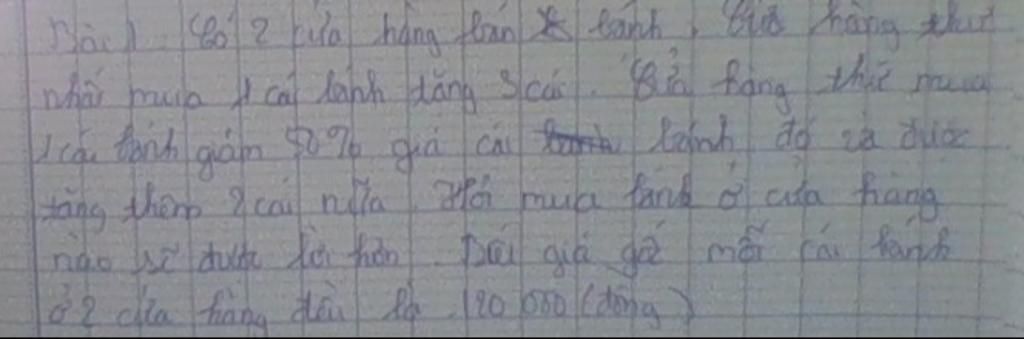 Bài 1 Có 2 cửa hàng bán bánh. Cửa hàng thứ
nhất mua 1 cái bánh tặng 3 cái. Cửa hàng thứ mua
1 cái bánh giảm 50% giá cái bánh đó và được
tặng thêm 2 cái nữa. Hỏi mua bánh ở cửa hàng
nào sẽ được lời hơn. giá mỗi cái bánh
ở 2 cửa hàng đều là 120 000 (đồng)